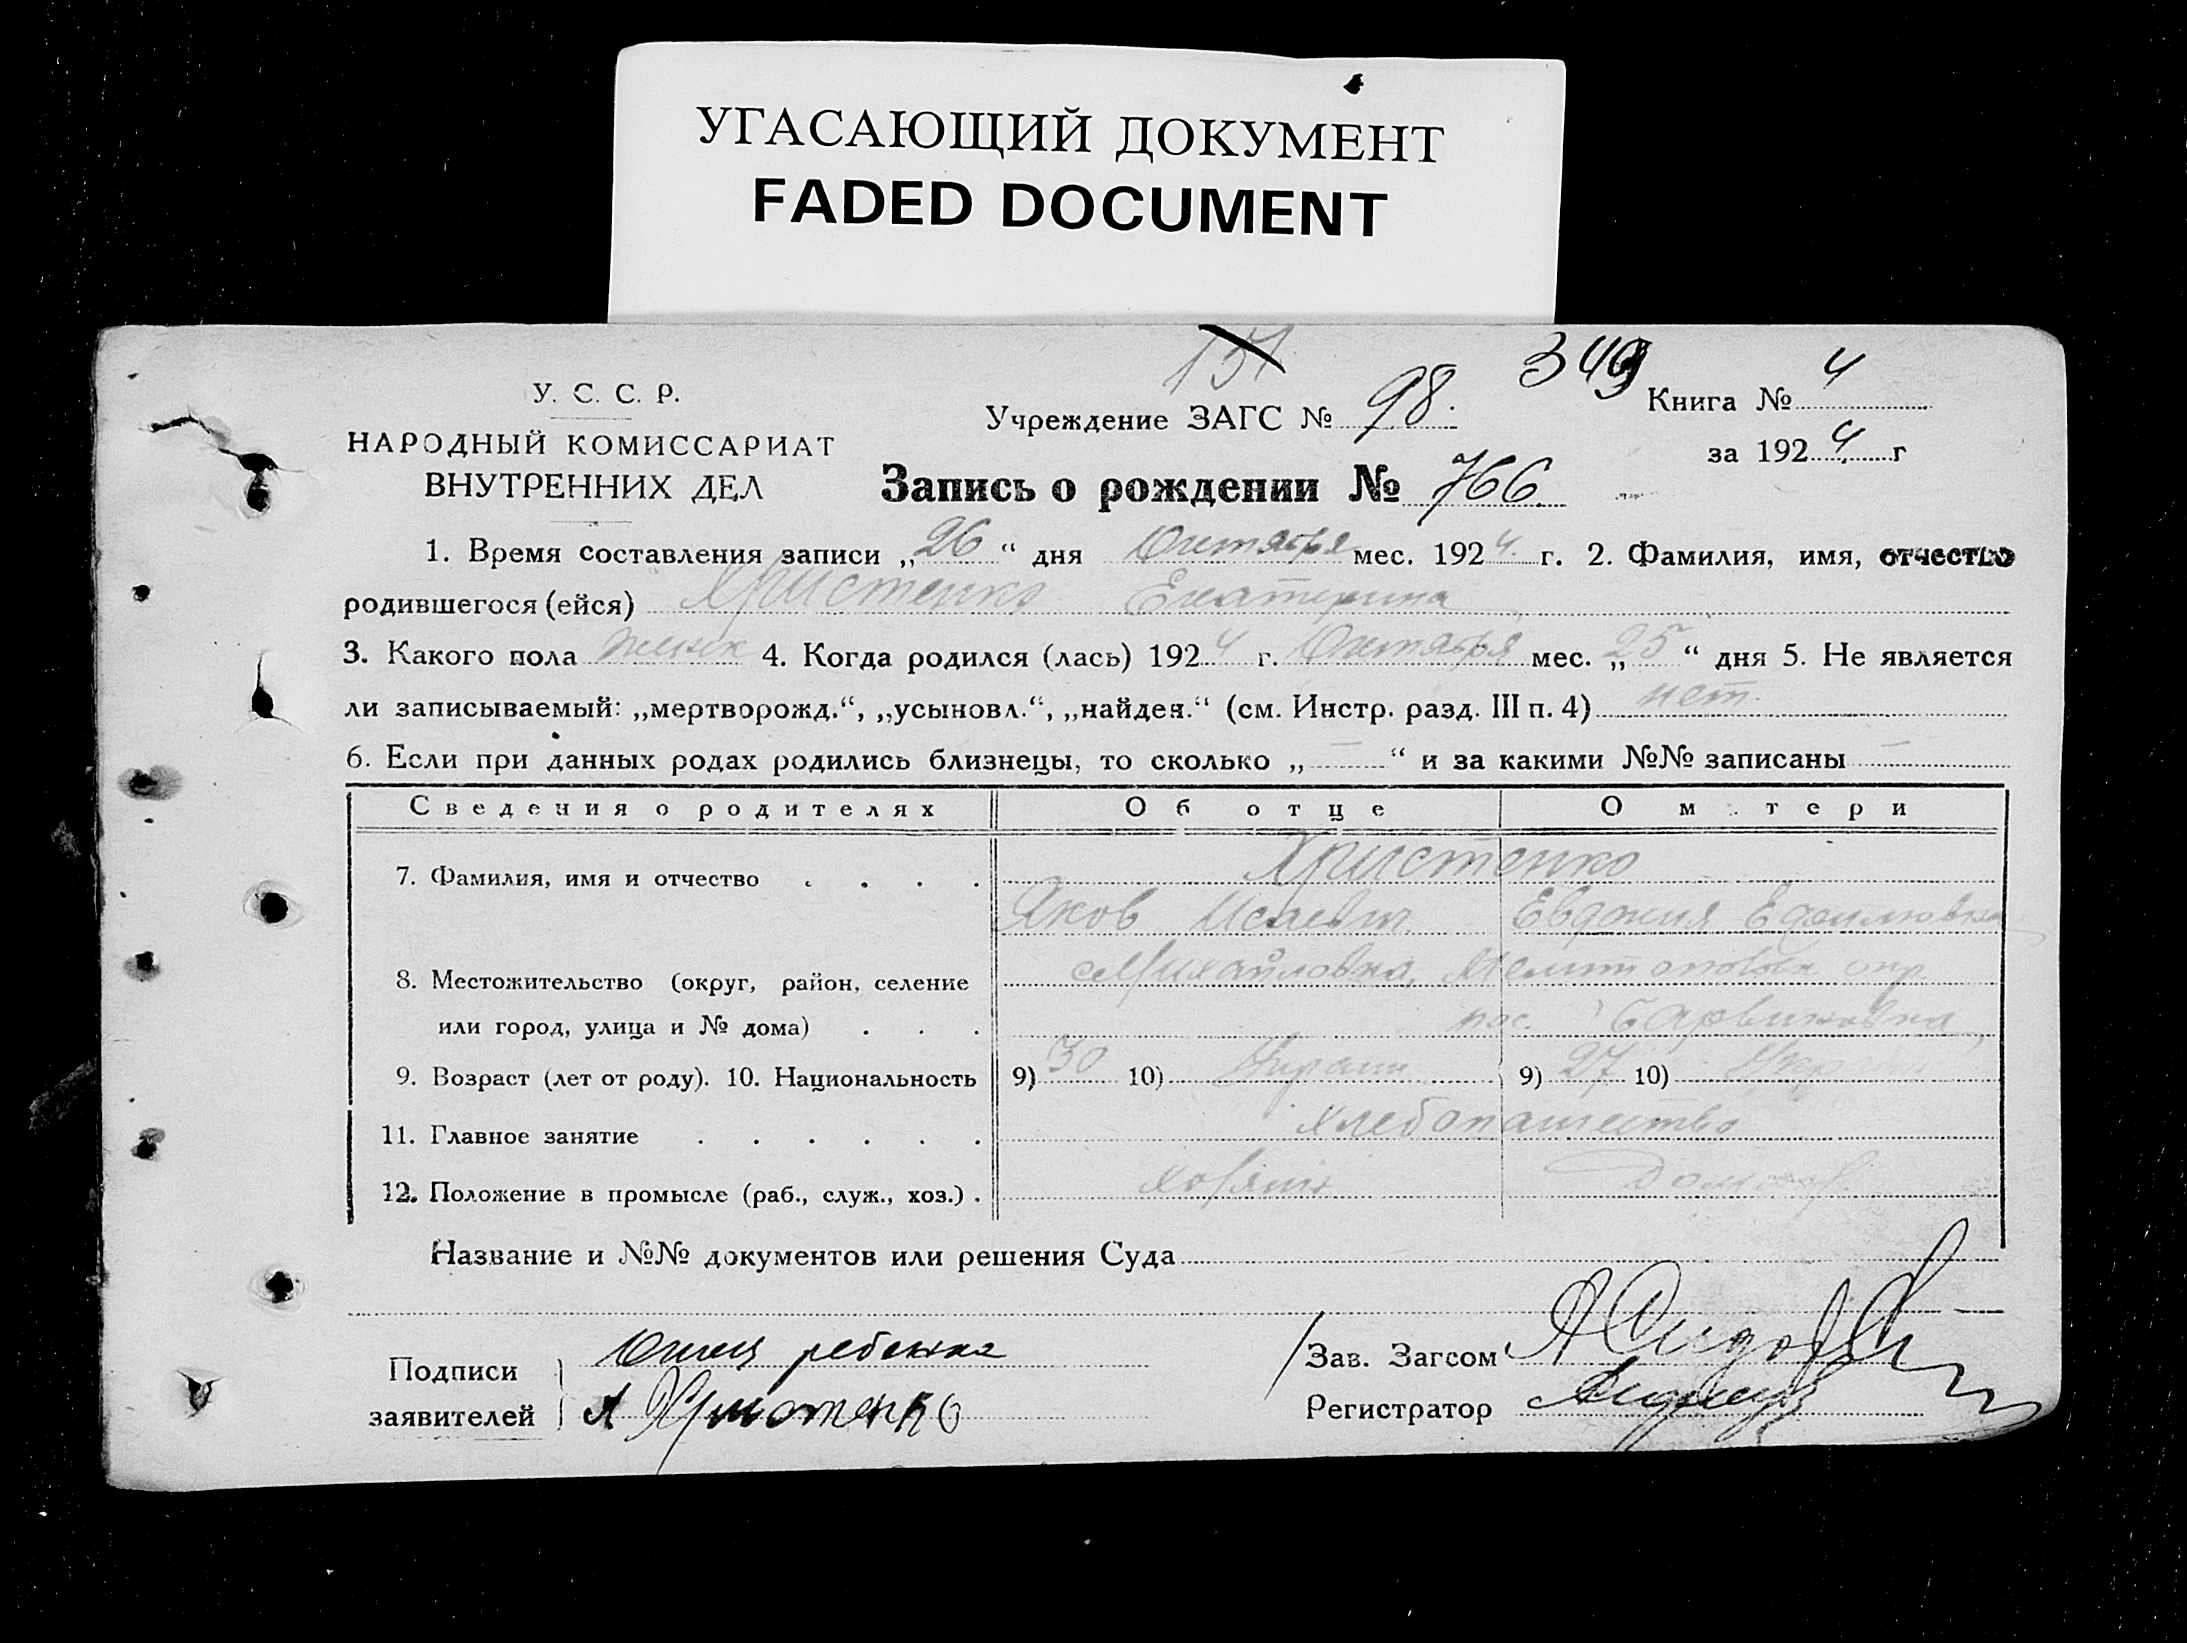 УГАСАЮЩИЙ ДОКУМЕНТ
FADED DOCUMENT
151 349
У. С. С. Р.
НАРОДНЫЙ КОМИССАРИАТ
ВНУТРЕННИХ ДЕЛ
Учреждение ЗАГС № 98.
Книга № 4
за 1924 г
Запись о рождении № 766.
1. Время составления записи „26“ дня Октября мес. 1924. г. 2. Фамилия, имя, отчество
родившегося (ейся) Христенко Екатерина
3. Какого пола женск 4. Когда родился (лась) 1924 г. Октября мес. „25“ дня 5. Не является
ли записываемый: „мертворожд.“, „усыновл.“, „найден.“ (см. Инстр. разд. III п. 4) нет.
6. Если при данных родах родились близнецы, то сколько „—“ и за какими №№ записаны —
Сведения о родителях Об отце О м.тери
7. Фамилия, имя и отчество . . . . Христенко
Яков Исаевич Евдокия
8. Местожительство (округ, район, селение Михайловка, окр.
или город, улица и № дома) . . . пос.
9. Возраст (лет от роду). 10. Национальность 9) 30 10) Украин 9) 27 10) Украин
11. Главное занятие . . . . . . хлебопашество
12. Положение в промысле (раб., служ., хоз.) . хозяин
Название и №№ документов или решения Суда
Подписи
заявителей
Отец ребенка
Я Христенко
Зав. Загсом
Регистратор